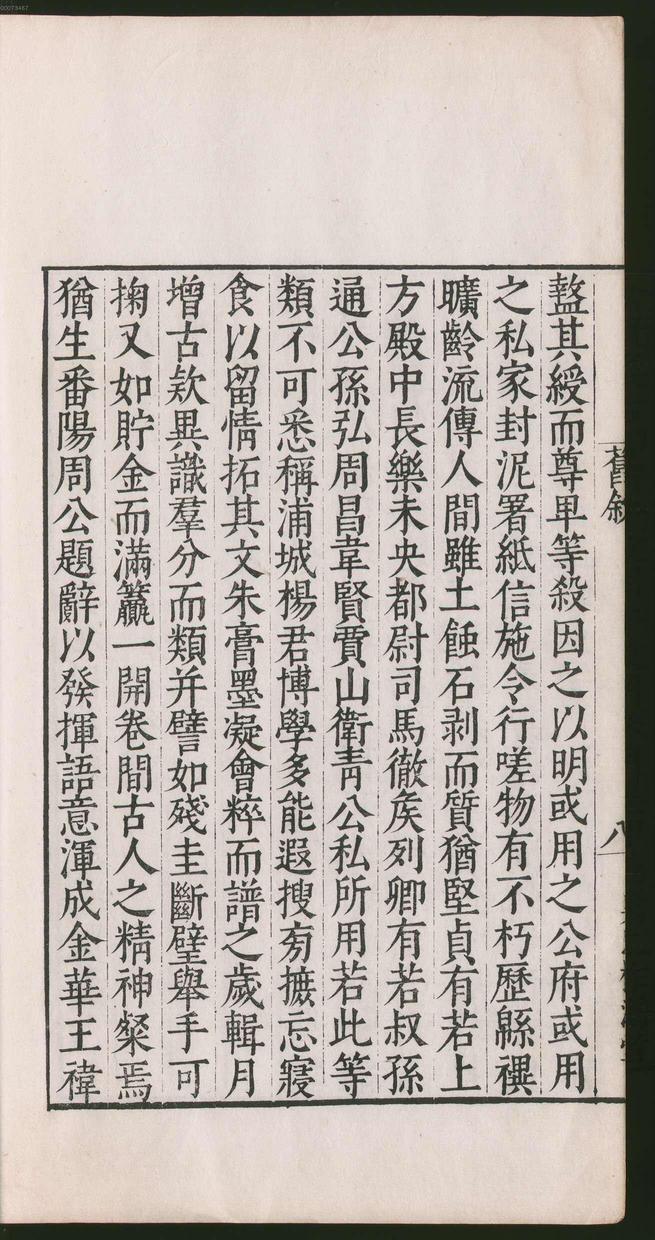 盭其綬而尊卑等殺因之以明或用之公府或用
之私家封泥署紙信施令行嗟物有不朽歷緜禩
曠齡流傳人間雖土蝕石剥而質猶堅貞有若上
方殿中長樂未央都尉司馬徹矦列卿有若叔孫
通公孫弘周昌韋賢賈山衛青公私所用若此等
類不可悉稱浦城楊君博學多能遐搜旁摭忘寢
食以留情拓其文朱膏墨凝會粹而譜之歲輯月
增古欵異識羣分而類并譬如殘圭斷璧舉手可
掬又如貯金而滿籯一開卷間古人之精神粲焉
猶生番陽周公題辭以發揮語意渾成金華王禕
舊敘
八
00073467